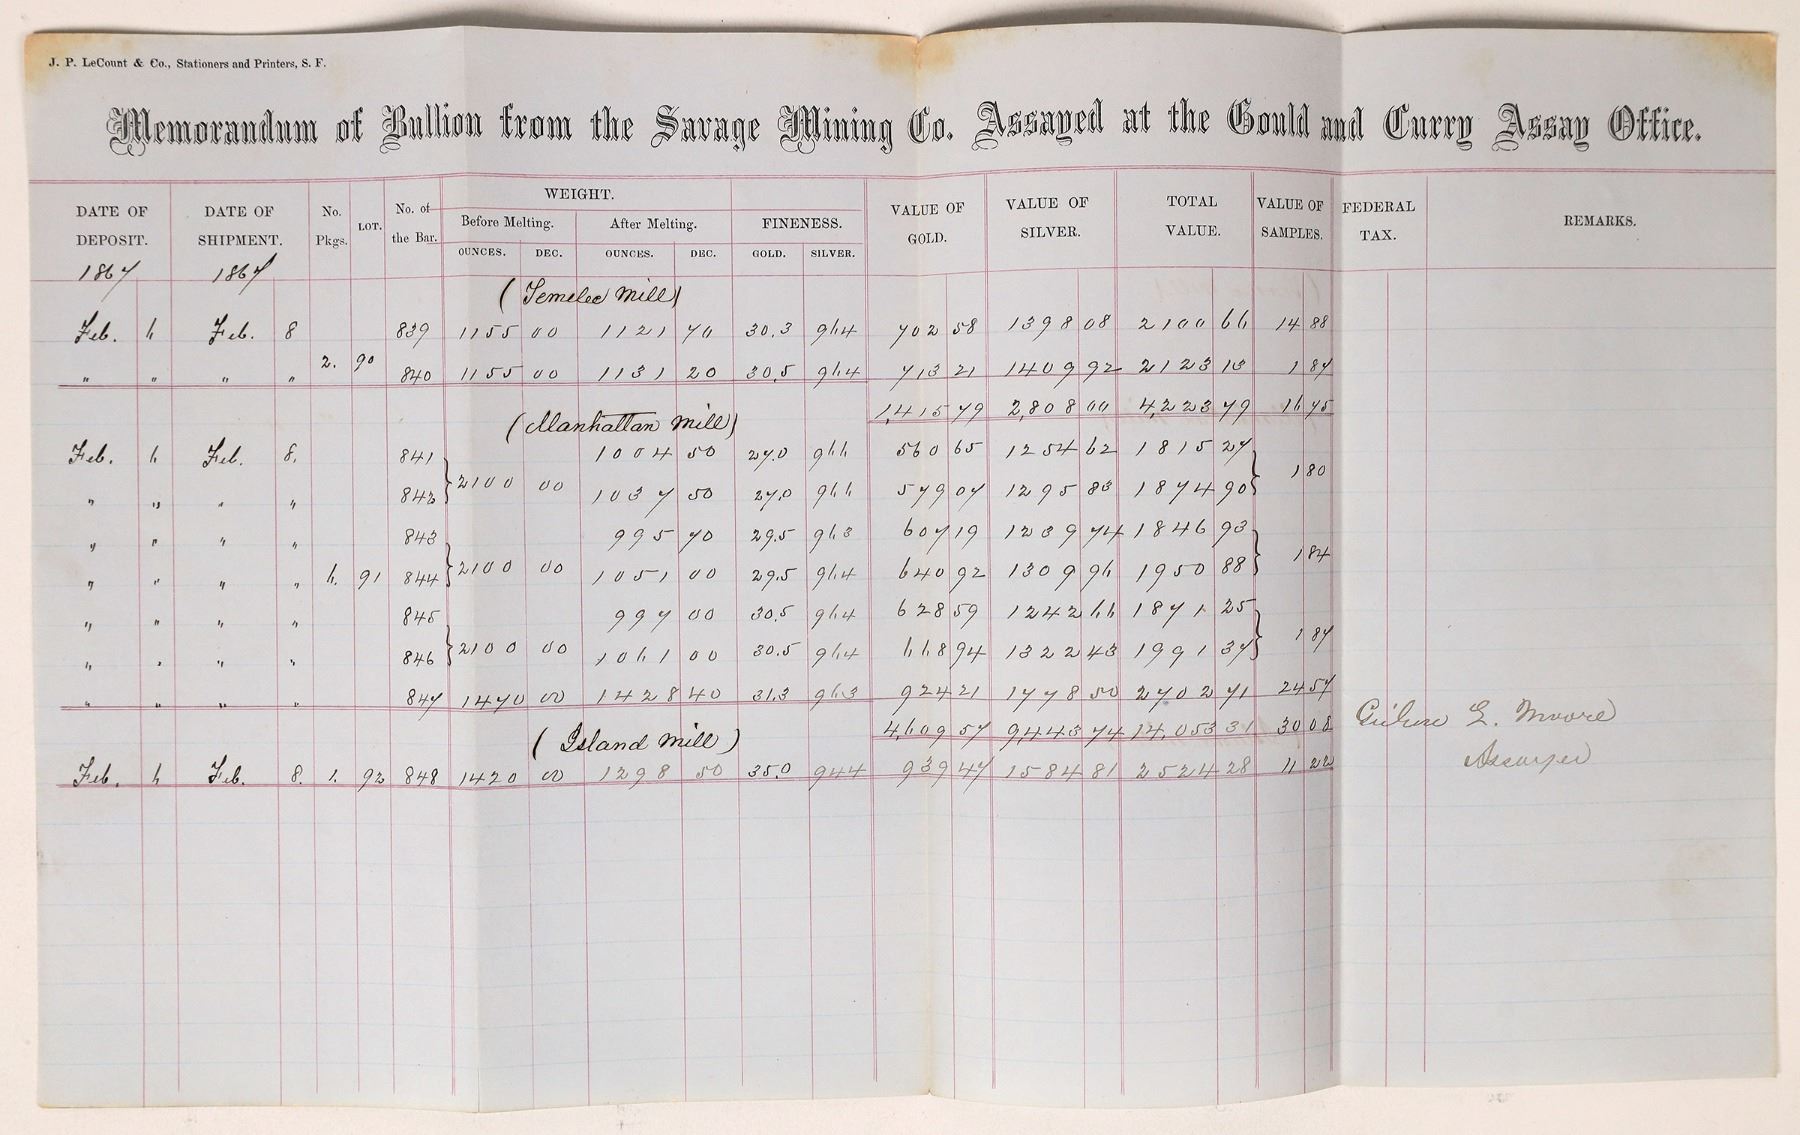 J. P. LeCount & Co., Stationers and Printers, S. F.
Memorandum of Bullion from the Savage Mining Co. Assayed at the Gould and Curry Assay Office.
DATE OF DEPOSIT. DATE OF SHIPMENT. No. Pkgs. LOT. No. of the Bar. WEIGHT. Before Melting. After Melting. FINENESS. VALUE OF GOLD. VALUE OF SILVER. TOTAL VALUE. VALUE OF SAMPLES. FEDERAL TAX. REMARKS.
OUNCES. DEC. OUNCES. DEC. GOLD. SILVER.
1867 1867
(Temelec Mill)
Feb. 6 Feb. 8 839 1155 00 1121 70 30.3 964 702 58 1398 08 2100 66 14 88
2. 90
" " " " 840 1155 00 1131 20 30.5 964 713 21 1409 92 2123 13 1 87
1,415 79 2,808 00 4,223 79 16 75
(Manhattan Mill)
Feb. 6 Feb. 8. 841 1004 50 27.0 966 560 65 1254 62 1815 27
2100 00 1 80
" " " " 842 1037 50 27.0 966 579 07 1295 83 1874 90
" " " " 843 995 70 29.5 963 607 19 1239 74 1846 93
2100 00 1 84
" " " " 6. 91 844 1051 00 29.5 964 640 92 1309 96 1950 88
" " " " 845 997 00 30.5 964 628 59 1242 66 1871 25
2100 00 1 87
" " " " 846 1061 00 30.5 964 668 94 1322 43 1991 37
" " " " 847 1470 00 1428 40 31.3 963 924 21 1778 50 2702 71 24 57
4,609 57 9,443 74 14,053 31 30 08 L. Moore
(Island Mill)
Assayer
Feb. 6 Feb. 8. 1. 92 848 1420 00 1298 50 35.0 944 939 47 1584 81 2524 28 11 22